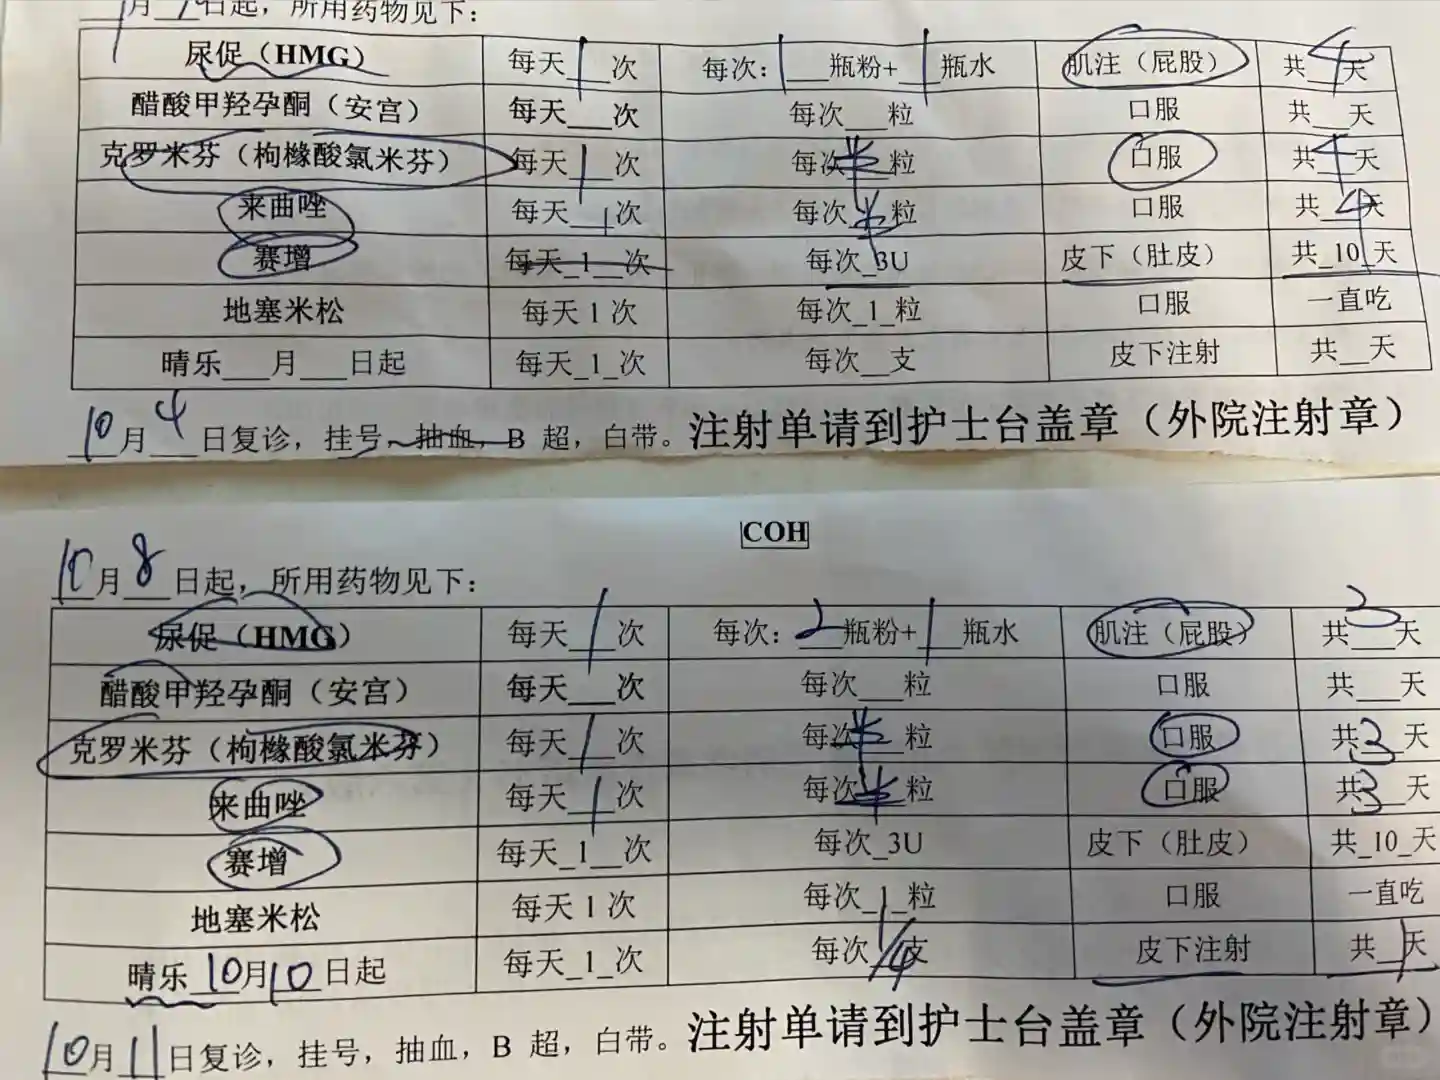 月 日起，所用药物见下：
尿促（HMG） 每天_1_次 每次：_1_瓶粉+_1_瓶水 肌注（屁股） 共_4_天
醋酸甲羟孕酮（安宫） 每天___次 每次___粒 口服 共___天
克罗米芬（枸橼酸氯米芬） 每天_1_次 每次_半_粒 口服 共_4_天
来曲唑 每天_1_次 每次_半_粒 口服 共_4_天
赛增 每天_1_次 每次_3U 皮下（肚皮） 共_10_天
地塞米松 每天 1 次 每次_1_粒 口服 一直吃
晴乐___月___日起 每天_1_次 每次__支 皮下注射 共__天
10月4日复诊，挂号，抽血，B 超，白带。注射单请到护士台盖章（外院注射章）
COH
10月8日起，所用药物见下：
尿促（HMG） 每天_1_次 每次：_2_瓶粉+_1_瓶水 肌注（屁股） 共_3_天
醋酸甲羟孕酮（安宫） 每天___次 每次___粒 口服 共___天
克罗米芬（枸橼酸氯米芬） 每天_1_次 每次_半_粒 口服 共_3_天
来曲唑 每天_1_次 每次_半_粒 口服 共_3_天
赛增 每天_1_次 每次_3U 皮下（肚皮） 共_10_天
地塞米松 每天 1 次 每次_1_粒 口服 一直吃
晴乐10月10日起 每天_1_次 每次1/4支 皮下注射 共_1_天
10月11日复诊，挂号，抽血，B 超，白带。注射单请到护士台盖章（外院注射章）